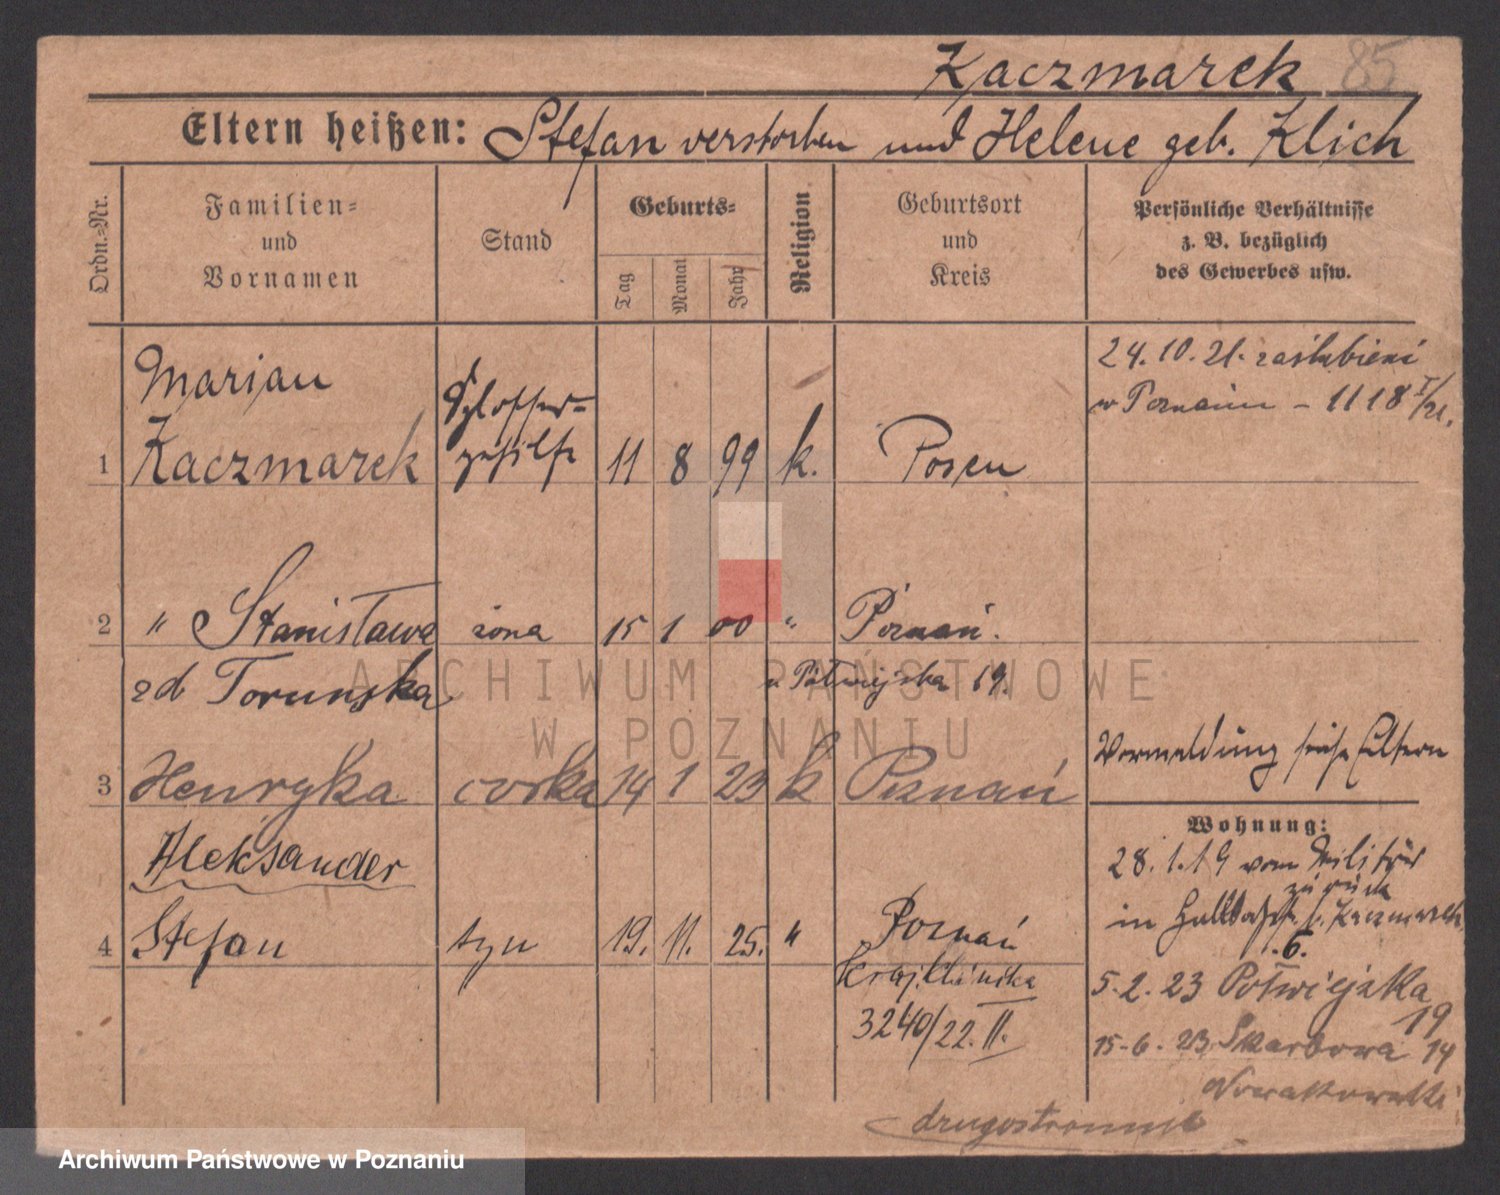 Kaczmarek 85
Eltern heißen: Stefan verstorben und Helene geb. Klich
Ordn.-Nr.
Familien-
und
Vornamen
Stand
Geburts-
Tag
Monat
Jahr
Religion
Geburtsort
und
Kreis
Persönliche Verhältnisse
z. B. bezüglich
des Gewerbes usw.
24.10.21. zaślubieni
w Poznaniu - 1118 I/21.
Marjan
Schlosser-
1 Kaczmarek gehilfe 11 8 99 k. Posen
2 " Stanisława żona 15 1 00 " Poznań.
zd Toruńska Półwiejska 19.
Vormeldung siehe Eltern
3 Henryka córka 14 1 23 k Poznań
Wohnung:
Aleksander
28.1.19 vom Militär
zurück
in Kaczmarek
6.
4 Stefan syn 19. 11. 25. " Poznań
kraj. klinika
3240/22. II.
5.2.23 Półwiejska
19
15-6.23. Skarbowa 14
Nowakowski
drugostronnie
ARCHIWUM PAŃSTWOWE
W POZNANIU
Archiwum Państwowe w Poznaniu